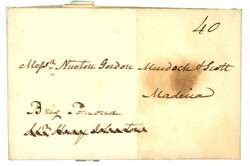 40
Messrs. Newton Gordon Murdoch & Scott
Madeira
Brig Pomona
Henry Johnstone